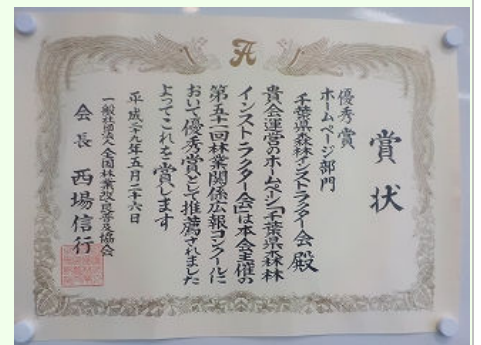 賞状
優秀賞
ホームページ部門
千葉県森林インストラクター会殿
貴会運営のホームページ「千葉県森林
インストラクター会」は本会主催の
第五十一回林業関係広報コンクールに
おいて優秀賞として推薦されました
よってこれを賞します
平成二十九年五月二十六日
一般社団法人全国林業改良普及協会
会長 西場信行